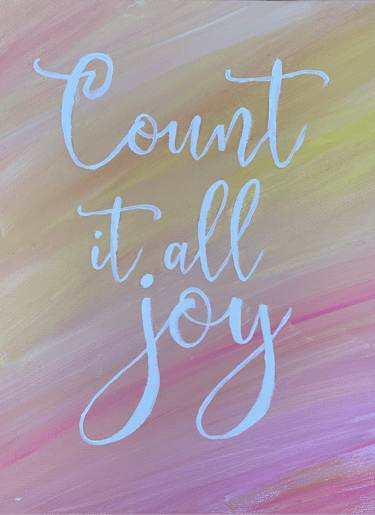 Count
it all
joy